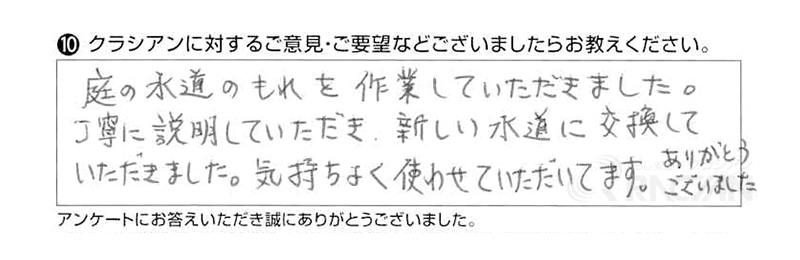 ⑩ クラシアンに対するご意見・ご要望などございましたらお教えください。
庭の水道のもれを作業していただきました。
丁寧に説明していただき、新しい水道に交換して
いただきました。気持ちよく使わせていただいてます。ありがとう
ございました
アンケートにお答えいただき誠にありがとうございました。